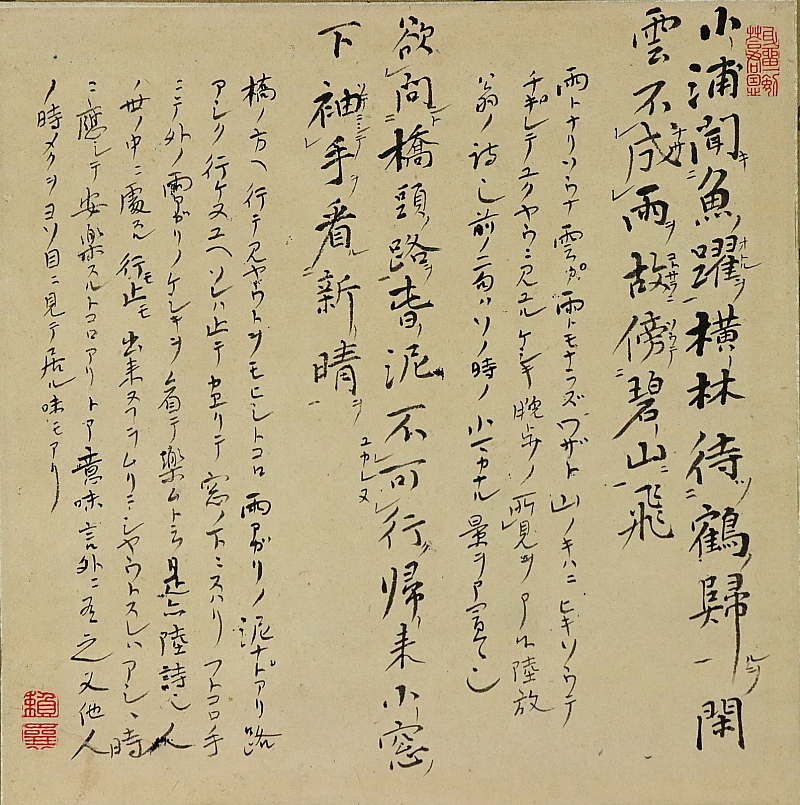 小浦聞魚躍横林待鶴歸閑
雲不成雨故傍碧山飛
雨トナリソウナ雲ガ雨トモナラズワザト山ノキハニヒキソウテ
チギレテユクヤウニ見ユルケシキ晩歩ノ所見ヲ陸放
翁ノ詩也前ノ二句ハソノ時ノ小カナル景ヲ
欲問橋頭路春泥不可行帰来小窓
下袖手看新晴
橋ノ方ヘ行テ見ヤウトヲモヒシトコロ雨アガリノ泥ナドアリ路
アシク行ケヌユヘソレハ止テカヘリテ窓ノ下ニスハリフトコロ手
ニテ外ノ雨アガリノケシキヲ看テ樂ムト云是亦陸詩也人
ノ世ノ中ニ處スル行モ止モ出来ヌヲムリニシヤウトスレハアシヽ時
ニ應シテ安樂スルトコロアリトノ意味言外ニ有之又他人
ノ時メクヲヨソ目ニ見テ居ル味モアリ
賴襄